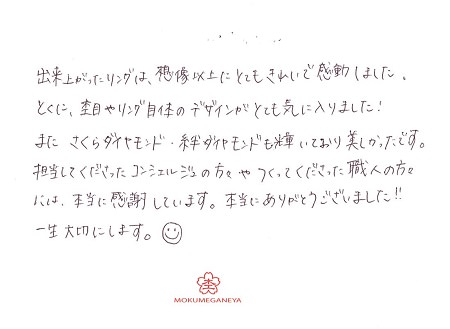 出来上がったリングは、想像以上にとてもきれいで感動しました。
とくに、杢目やリング自体のデザインがとても気に入りました!
また さくらダイヤモンド・絆ダイヤモンドも輝いており美しかったです。
担当してくださった コンシェルジュの方々や つくってくださった 職人の方々
には、本当に感謝しています。本当にありがとうございました!!
一生大切にします。
杢
MOKUMEGANEYA